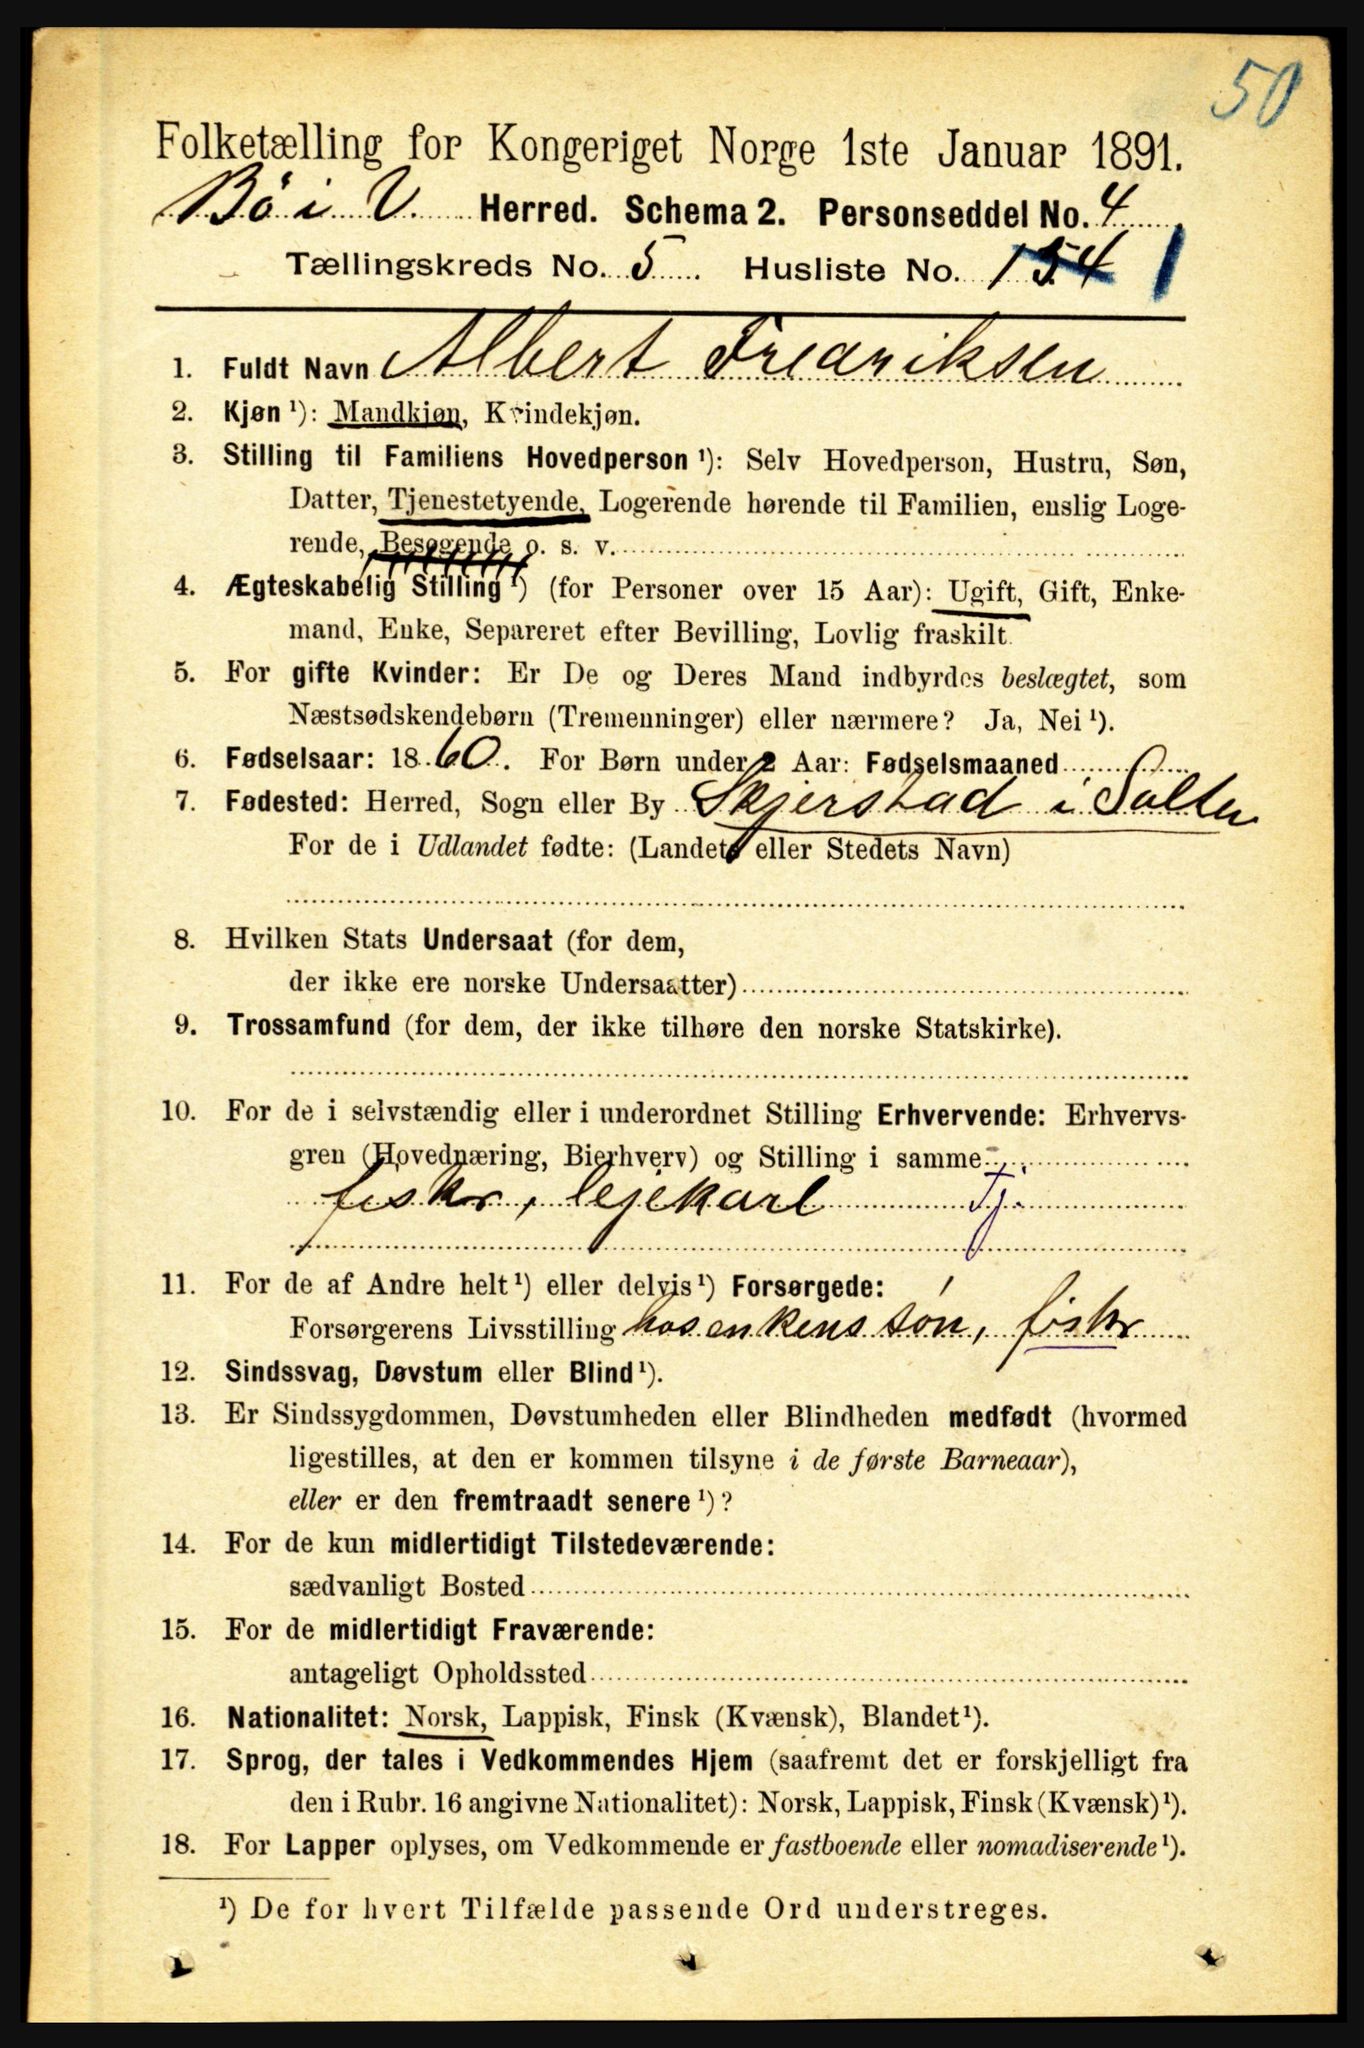 50
Folketælling for Kongeriget Norge 1ste Januar 1891.
Bö i V. Herred. Schema 2. Personseddel No. 4
Tællingskreds No. 5 Husliste No. 154 1
1. Fuldt Navn Albert Fredriksen
2. Kjøn ¹): Mandkjøn, Kvindekjøn.
3. Stilling til Familiens Hovedperson ¹): Selv Hovedperson, Hustru, Søn,
Datter, Tjenestetyende, Logerende hørende til Familien, enslig Loge-
rende, Besøgende o. s. v.
4. Ægteskabelig Stilling ¹) (for Personer over 15 Aar): Ugift, Gift, Enke-
mand, Enke, Separeret efter Bevilling, Lovlig fraskilt.
5. For gifte Kvinder: Er De og Deres Mand indbyrdes beslægtet, som
Næstsødskendebørn (Tremenninger) eller nærmere? Ja, Nei ¹).
6. Fødselsaar: 1860. For Børn under 2 Aar: Fødselsmaaned
7. Fødested: Herred, Sogn eller By Skjerstad i Salten
For de i Udlandet fødte: (Landets eller Stedets Navn)
8. Hvilken Stats Undersaat (for dem,
der ikke ere norske Undersaatter)
9. Trossamfund (for dem, der ikke tilhøre den norske Statskirke).
10. For de i selvstændig eller i underordnet Stilling Erhvervende: Erhvervs-
gren (Hovednæring, Bierhverv) og Stilling i samme
fiskr, lejekarl Tj.
11. For de af Andre helt ¹) eller delvis ¹) Forsørgede:
Forsørgerens Livsstilling hos enkens søn, fiskr
12. Sindssvag, Døvstum eller Blind ¹).
13. Er Sindssygdommen, Døvstumheden eller Blindheden medfødt (hvormed
ligestilles, at den er kommen tilsyne i de første Barneaar),
eller er den fremtraadt senere ¹)?
14. For de kun midlertidigt Tilstedeværende:
sædvanligt Bosted
15. For de midlertidigt Fraværende:
antageligt Opholdssted
16. Nationalitet: Norsk, Lappisk, Finsk (Kvænsk), Blandet ¹).
17. Sprog, der tales i Vedkommendes Hjem (saafremt det er forskjelligt fra
den i Rubr. 16 angivne Nationalitet): Norsk, Lappisk, Finsk (Kvænsk) ¹).
18. For Lapper oplyses, om Vedkommende er fastboende eller nomadiserende ¹).
¹) De for hvert Tilfælde passende Ord understreges.